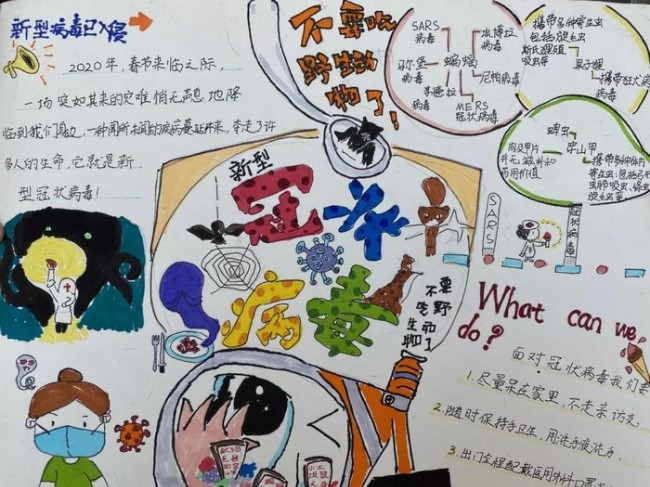 新型病毒已入侵
2020年,春节来临之际,
一场突如其来的灾难悄无声息地降
临到我们身边,一种闻所未闻的疾病蔓延开来,夺走了许
多人的生命,它就是新
型冠状病毒!
不要吃
野生动
物了!
SARS
病毒
埃博拉
病毒
蝙蝠
尼帕病毒
MERS
冠状病毒
携带多种寄生虫
包括旋毛虫
果子狸
携带狂犬病
病毒
穿山甲
药用价值
新型
冠状
病毒
要野
不生
吃动
物了
SARS
冠状病毒
What can we
do?
面对冠状病毒我们要
1.尽量呆在家里,不走亲访友
2.随时保持手卫生,用洗手液洗手
3.出门全程配戴医用外科口罩